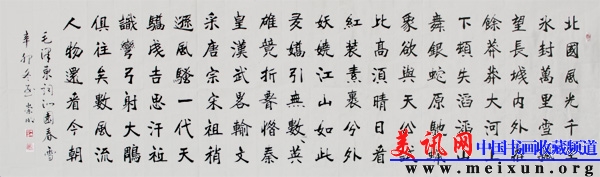 北國風光千里
冰封萬里雪飄
望長城内外惟
餘莽々大河上
下頓失滔々山
舞銀蛇原馳蠟
象欲與天公試
比高須晴日看
紅裝素裹分外
妖嬈江山如此
多嬌引無數英
雄競折腰惜秦
皇漢武略輸文
采唐宗宋祖稍
遜風騷一代天
驕成吉思汗祗
識彎弓射大鵰
俱往矣數風流
人物還看今朝
毛澤東詞沁園春雪
辛卯冬
美讯网 中国书画收藏频道
www.meixun.org